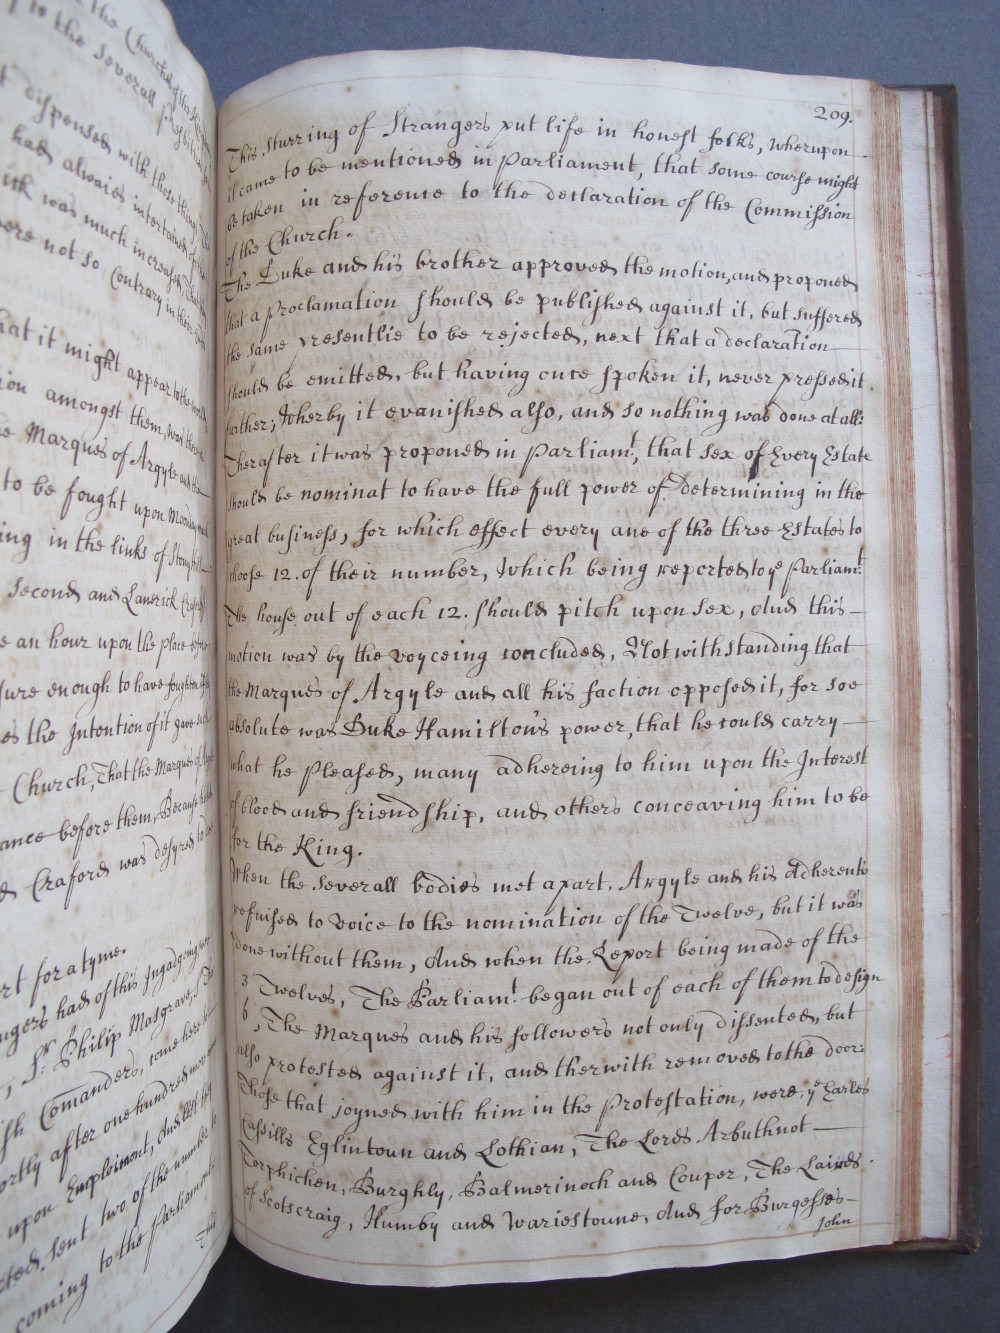 the Church of the
to the severall Presbit
t dispensed with these things
had alwaies intertained
ink was much increased, That
were not so contrary in their
hat it might appear to the
ion amongst them, was
e Marques of Argyle and the
to be fought upon Monday
ing in the links of Stony hill
second and Lanerick
e an hour upon the place before
sure enough to have foughten
es the Intention of it gave
Church, That the Marques of
ance before them, Because
d Craford was desyred to
rt for a tyme.
ngers had of this Ingadgeing
, Sr. Philip Masgrave,
ish Comanders, come here
ortly after one hundred more
upon Emploiment, And lest they
cted, sent two of the number to
coming to the Parliament
This
209.
This sturring of Strangers put life in honest folks, wherupon
it came to be mentioned in Parliament, that some course might
be taken in reference to the declaration of the Commission
of the Church.
The Duke and his brother approved the motion, and proponed
that a Proclamation should be published against it, but suffered
the same presentlie to be rejected, next that a declaration
should be emitted, but having once spoken it, never pressed it
further; Wherby it evanished also, and so nothing was done at all:
Therafter it was proponed in Parliamt, that sex of Every Estate
should be nominat to have the full power of determining in the
great business, for which effect every ane of the three Estates to
choose 12. of their number, Which being reported to ye Parliamt.
The house out of each 12. should pitch upon sex, And this
motion was by the voyceing concluded, Notwithstanding that
the Marques of Argyle and all his faction opposed it, for soe
absolute was Duke Hamilton's power, that he could carry
what he pleased, many adhereing to him upon the Interest
of blood and friendship, and others conceaving him to be
for the King.
When the severall bodies met apart, Argyle and his Adherents
refuised to voice to the nomination of the Twelve, but it was
done without them, And when the Report being made of the
3 Twelves, The Parliamt. began out of each of them to design
6, The Marques and his followers not only dissented, but
also protested against it, and therwith removed to the door:
Those that joyned with him in the Protestation, were, ye Earles
Cassills Eglintoun and Lothian, The Lords Arbuthnot
Torphichen, Burghly, Balmerinoch and Couper, The Lairds
of Scotscraig, Humby and Wariestoune, And for Burgesses
John